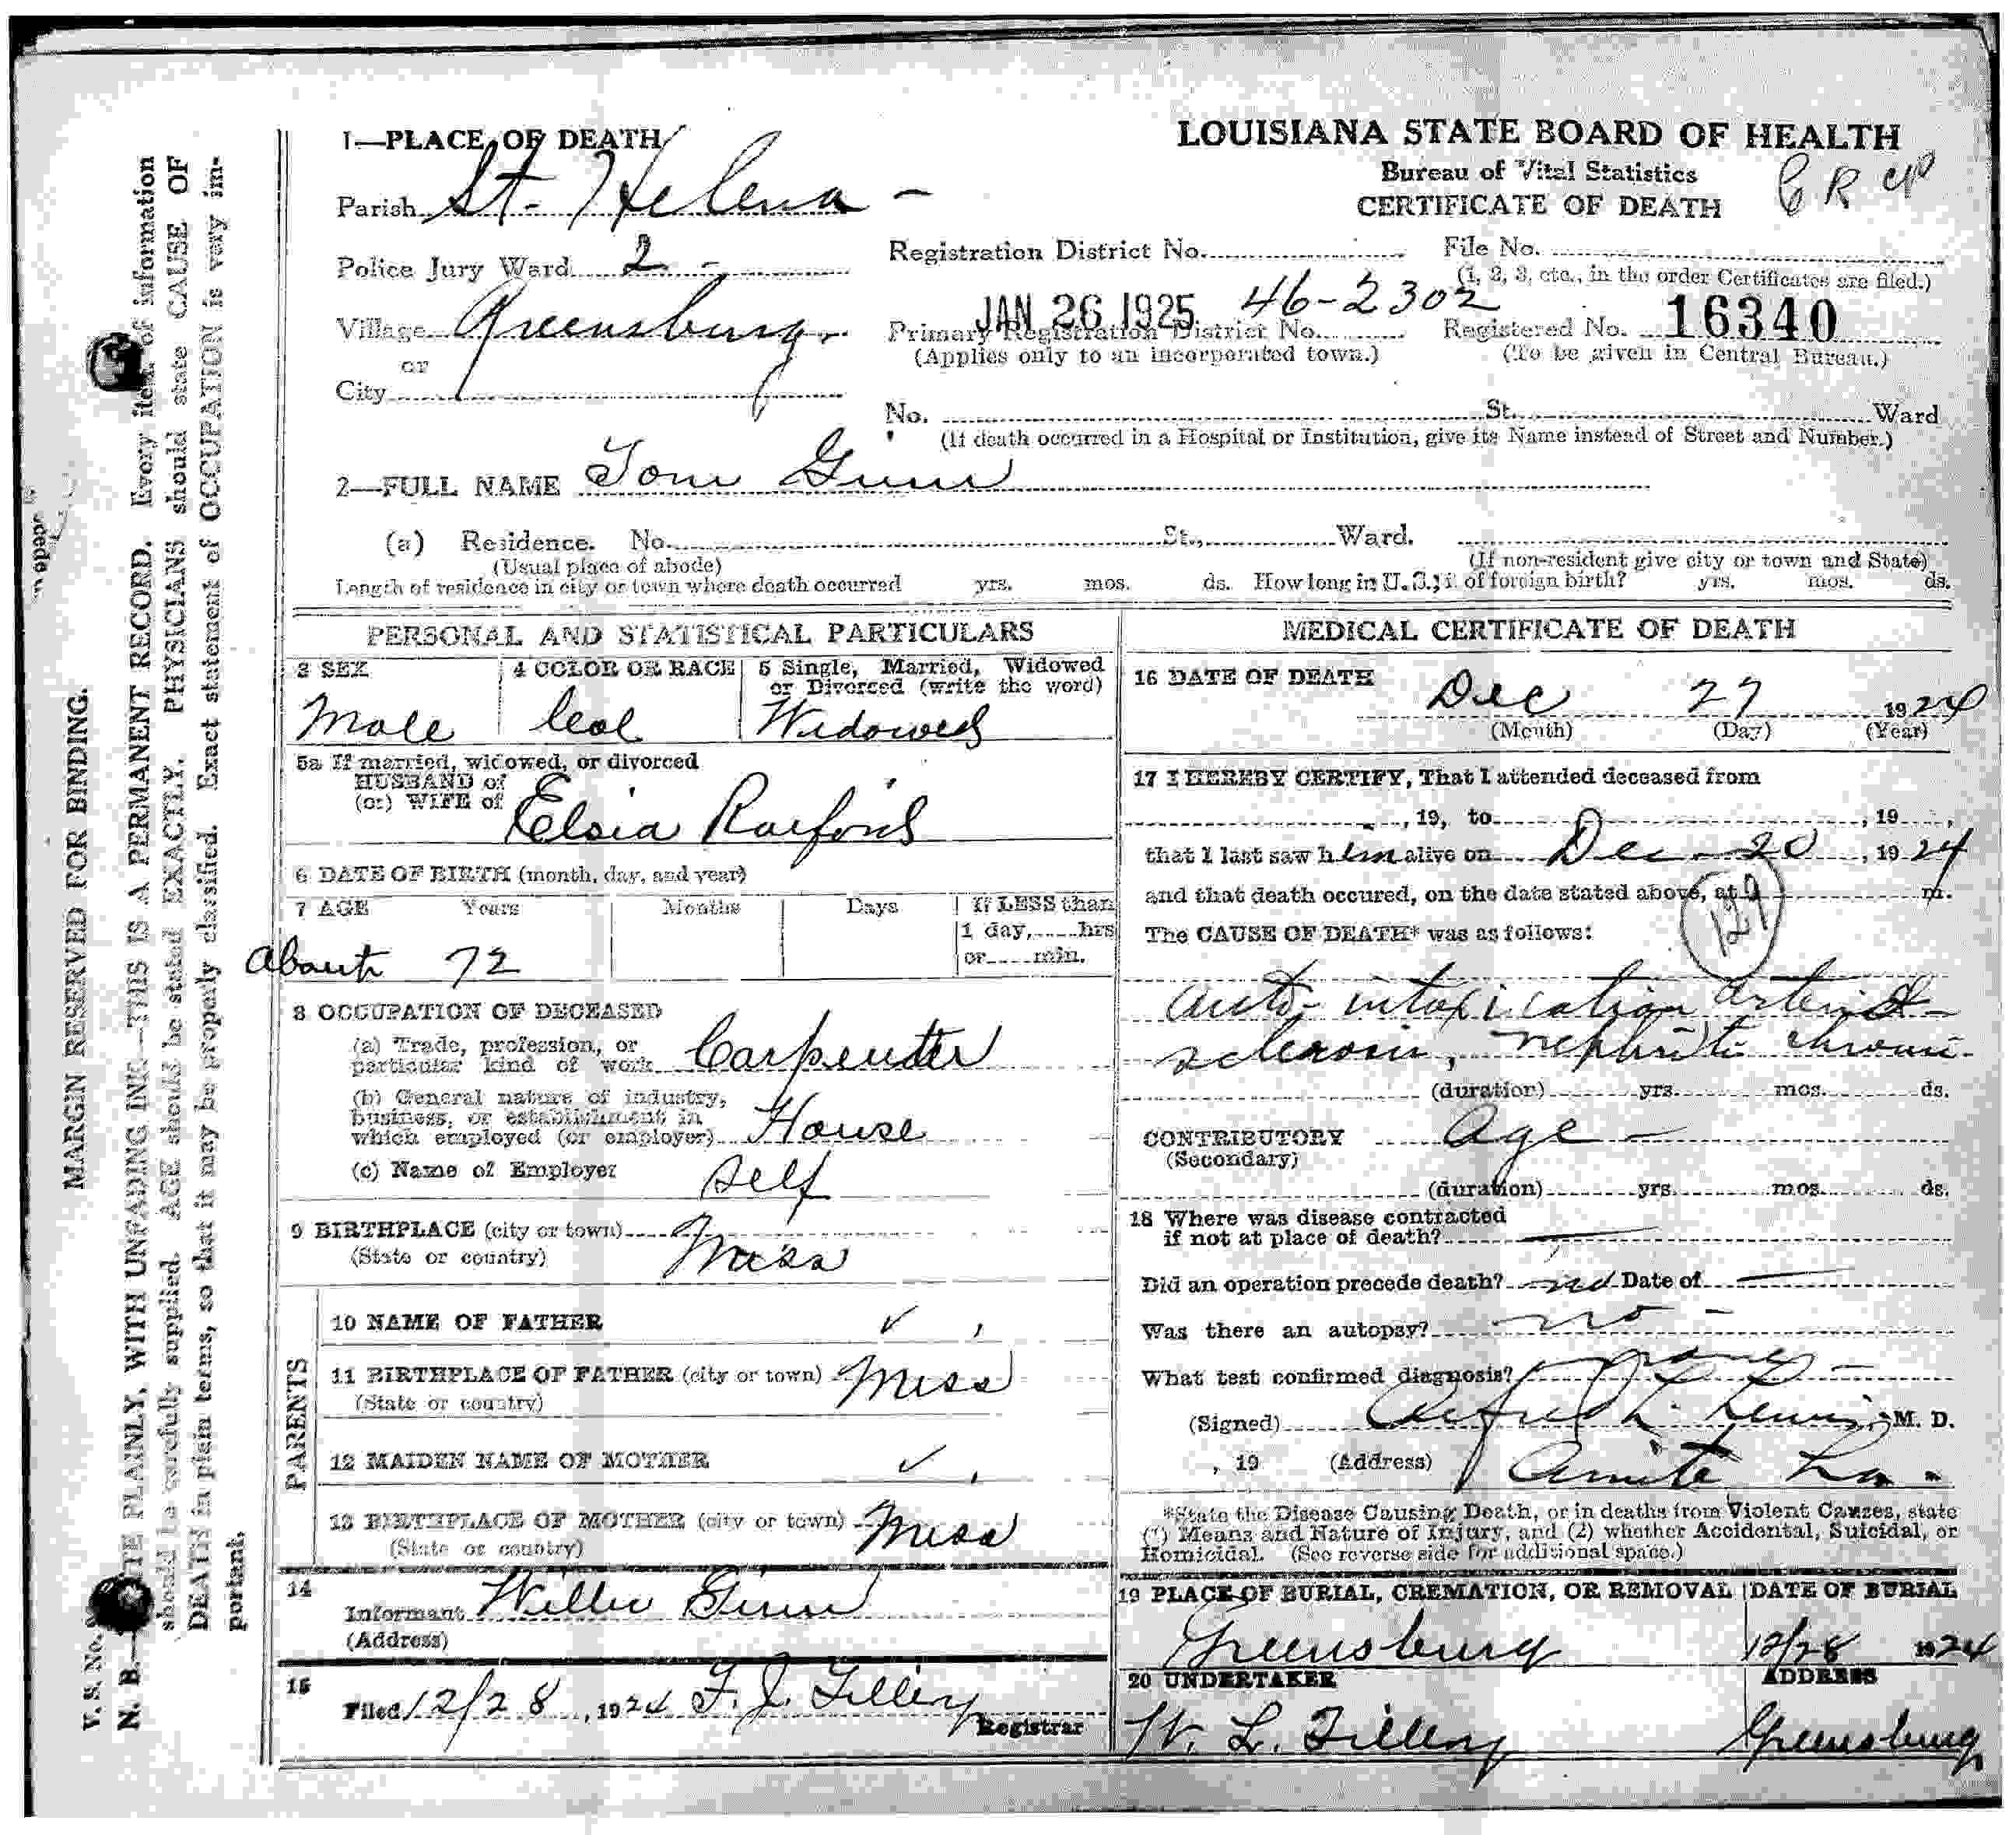 LOUISIANA STATE BOARD OF HEALTH
Bureau of Vital Statistics
CERTIFICATE OF DEATH
1—PLACE OF DEATH
Parish St. Helena -
Police Jury Ward 2 -
Village Greensburg.
or
City
Registration District No.
File No.
(1, 2, 3, etc., in the order Certificates are filed.)
JAN 26 1925 46-2302
Primary Registration District No.
(Applies only to an incorporated town.)
Registered No. 16340
(To be given in Central Bureau.)
No. St. Ward
(If death occurred in a Hospital or Institution, give its Name instead of Street and Number.)
2—FULL NAME Tom Gunn
(a) Residence. No. St., Ward.
(Usual place of abode)
(If non-resident give city or town and State)
Length of residence in city or town where death occurred yrs. mos. ds. How long in U. S., if of foreign birth? yrs. mos. ds.
PERSONAL AND STATISTICAL PARTICULARS
3 SEX
Male
4 COLOR OR RACE
Col
5 Single, Married, Widowed
or Divorced (write the word)
Widowed
5a If married, widowed, or divorced
HUSBAND of
(or) WIFE of
Elsia Raiford
6 DATE OF BIRTH (month, day, and year)
7 AGE Years Months Days If LESS than
1 day, hrs
or min.
About 72
8 OCCUPATION OF DECEASED
(a) Trade, profession, or
particular kind of work Carpenter
(b) General nature of industry,
business, or establishment in
which employed (or employer) House
(c) Name of Employer self
9 BIRTHPLACE (city or town)
(State or country) Miss
PARENTS
10 NAME OF FATHER ✓
11 BIRTHPLACE OF FATHER (city or town) Miss
(State or country)
12 MAIDEN NAME OF MOTHER ✓
13 BIRTHPLACE OF MOTHER (city or town) Miss
(State or country)
14
Informant Willie Gunn
(Address)
15
Filed 12/28, 1924 F. J. Tillery
Registrar
MEDICAL CERTIFICATE OF DEATH
16 DATE OF DEATH
Dec 27 1924
(Month) (Day) (Year)
17 I HEREBY CERTIFY, That I attended deceased from
, 19, to , 19 ,
that I last saw him alive on Dec - 20, 1924
and that death occured, on the date stated above, at m.
129
The CAUSE OF DEATH* was as follows:
Auto-intoxication arterio-
sclerosis, nephritis chronic.
(duration) yrs. mos. ds.
CONTRIBUTORY Age -
(Secondary)
(duration) yrs. mos. ds.
18 Where was disease contracted
if not at place of death? —
Did an operation precede death? no Date of —
Was there an autopsy? no -
What test confirmed diagnosis? none -
(Signed) Alfred L. Lewis, M. D.
, 19 (Address) Amite La.
*State the Disease Causing Death, or in deaths from Violent Causes, state
(1) Means and Nature of Injury, and (2) whether Accidental, Suicidal, or
Homicidal. (See reverse side for additional space.)
19 PLACE OF BURIAL, CREMATION, OR REMOVAL
Greensburg
DATE OF BURIAL
12/28 1924
20 UNDERTAKER
W. L. Tillery
ADDRESS
Greensburg
MARGIN RESERVED FOR BINDING.
V. S. No.
N. B.— PLAINLY, WITH UNFADING INK—THIS IS A PERMANENT RECORD. Every item of information
should be carefully supplied. AGE should be stated EXACTLY. PHYSICIANS should state CAUSE OF
DEATH in plain terms, so that it may be properly classified. Exact statement of OCCUPATION is very im-
portant.